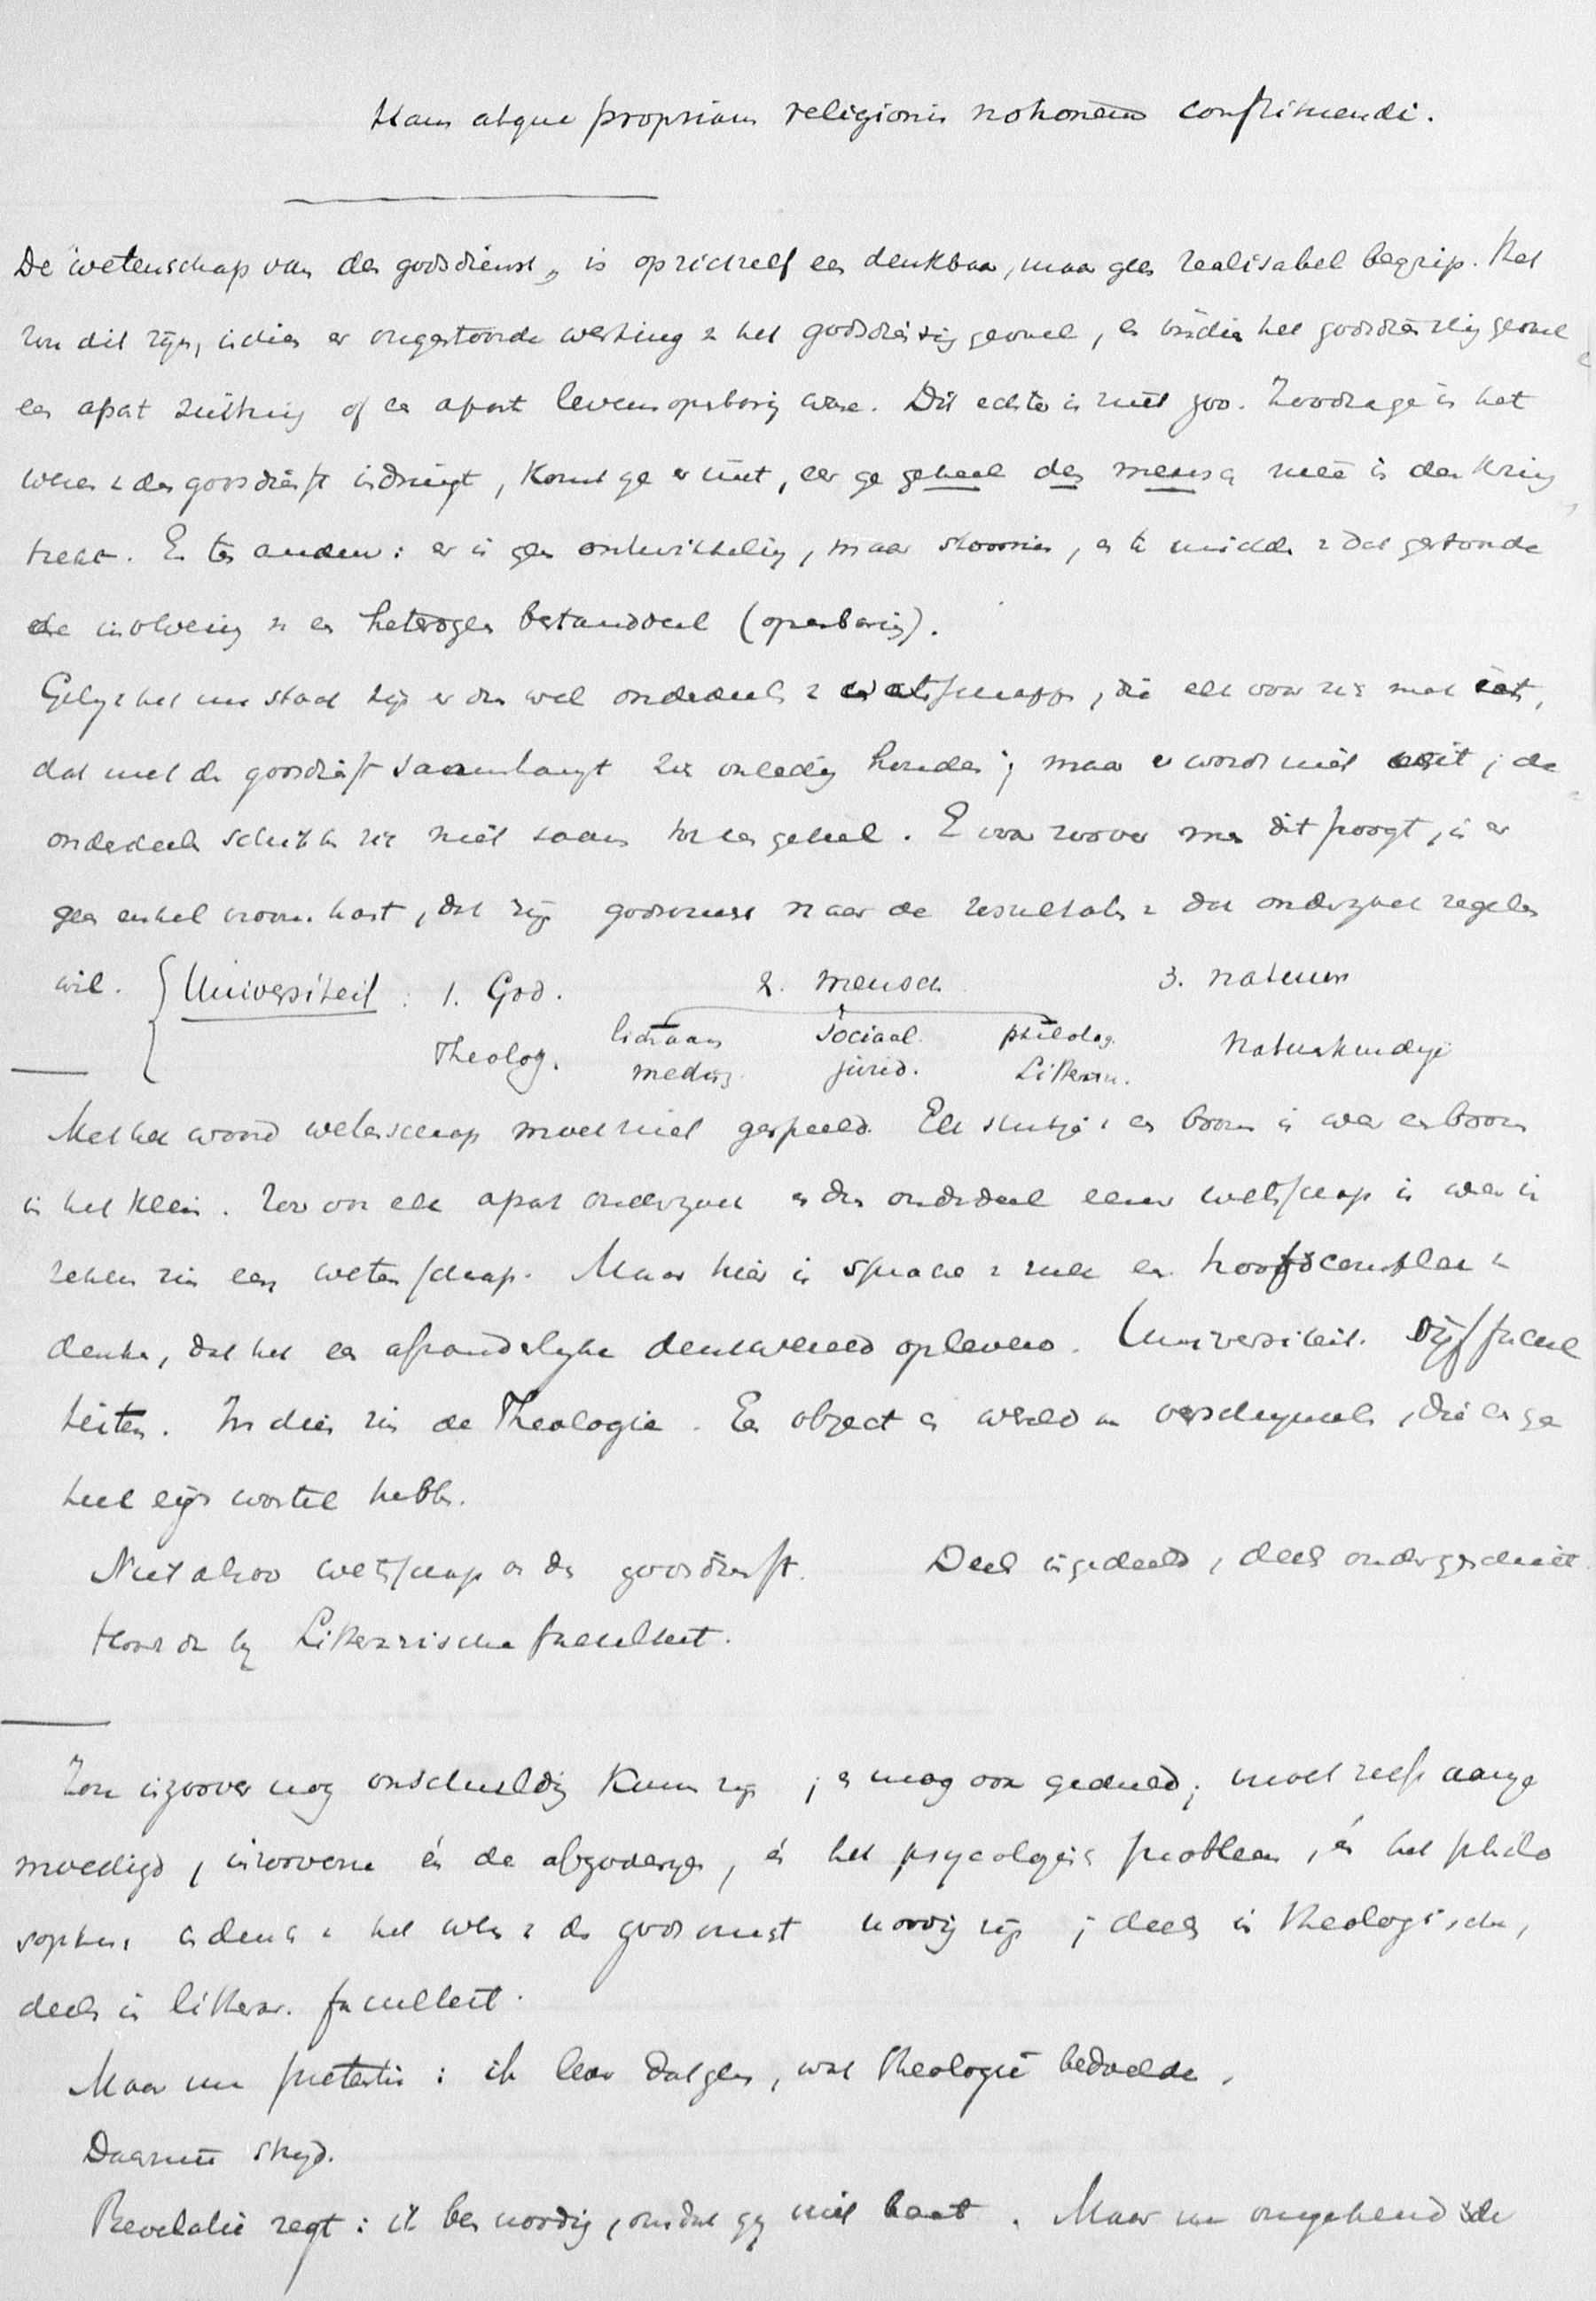 atque propriam religionis notionem constituendi.
De wetenschap van den godsdienst, is opzichzelf een denkbaar, maar geen realisabel begrip. Het
zou dit zijn, indien er ongestoorde werking v het godsdienstig gevoel, en indien het godsdienstig gevoel
een apart richting of een apart levensopenbaring ware. Dit echter is niet zoo. Zoodra ge in het
wezen v den godsdienst indringt, komt ge er niet, eer ge geheel den mensch meê in den kring
trekt. En ten anderen: er is geen ontwikkeling, maar stoornis, en te midden v dat gestoorde
de involving v een heterogeen bestanddeel (openbaring).
Gelijk het nu staat zijn er dus wel onderdeelen v wetenschapp, die elk voor zich met iets,
dat met de godsdienst saamhangt zich onledig houden; maar er wordt niet uit; de
onderdeelen schikken zich niet saam tot een geheel. En voor zoover men dit poogt, is er
geen enkel vroom hart, dat zijn godsdienst naar de resultaten v dat onderzoek regelen
wil. Universiteit: 1. God. 2. mensch 3. natuur
Theolog. lichaam sociaal. philolog. Natuurkundige
medis. jurid. Litterar.
Met het woord wetenschap moet niet gespeeld. Elk stukje v een boom is weer een boom
in het klein. Zoo ook elk apart onderzoek en dus onderdeel eener wetenschap is weer in
zekeren zin een wetenschap. Maar hier is sprake v zulk een hoofdcomplex v
denken, dat het een afzonderlijke denkwereld oplevere. Universiteit. Vijf facul
teiten. In dien zin de Theologie. Een object en wereld v verschijnsels, die een ge
heel eigen wortel hebben.
Niet alzoo wetenschap v den godsdienst. Deels ingedeeld, deels ondergeschikt.
Hoort in bij Litterarische faculteit.
Zou inzoover nog onschuldig kunnen zijn; en mag ook geduld; moet zelfs aange
moedigd, inzooverre én de afgoderijen, én het psycologisch probleem, én het philo
sophisch indenken v het wezen v den godsdienst noodig zijn; deels in theologische,
deels in litterar. faculteit.
Maar nu pretentie: ik leer datgeen, wat Theologie bedoelde.
Daarmeê strijd.
Revelatie zegt: ik ben noodig, omdat gij niet kunt. Maar nu omgekeerd de